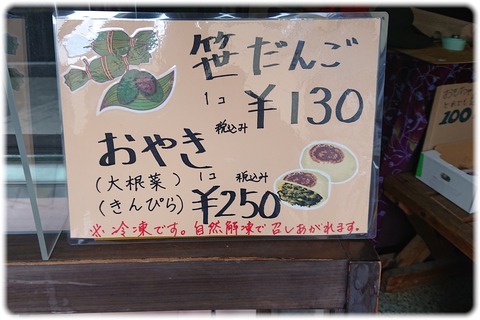 笹だんご
1コ 税込み ¥130
おやき
(大根菜) 1コ 税込み
(きんぴら) ¥250
※冷凍です。自然解凍で召しあがれます。
100